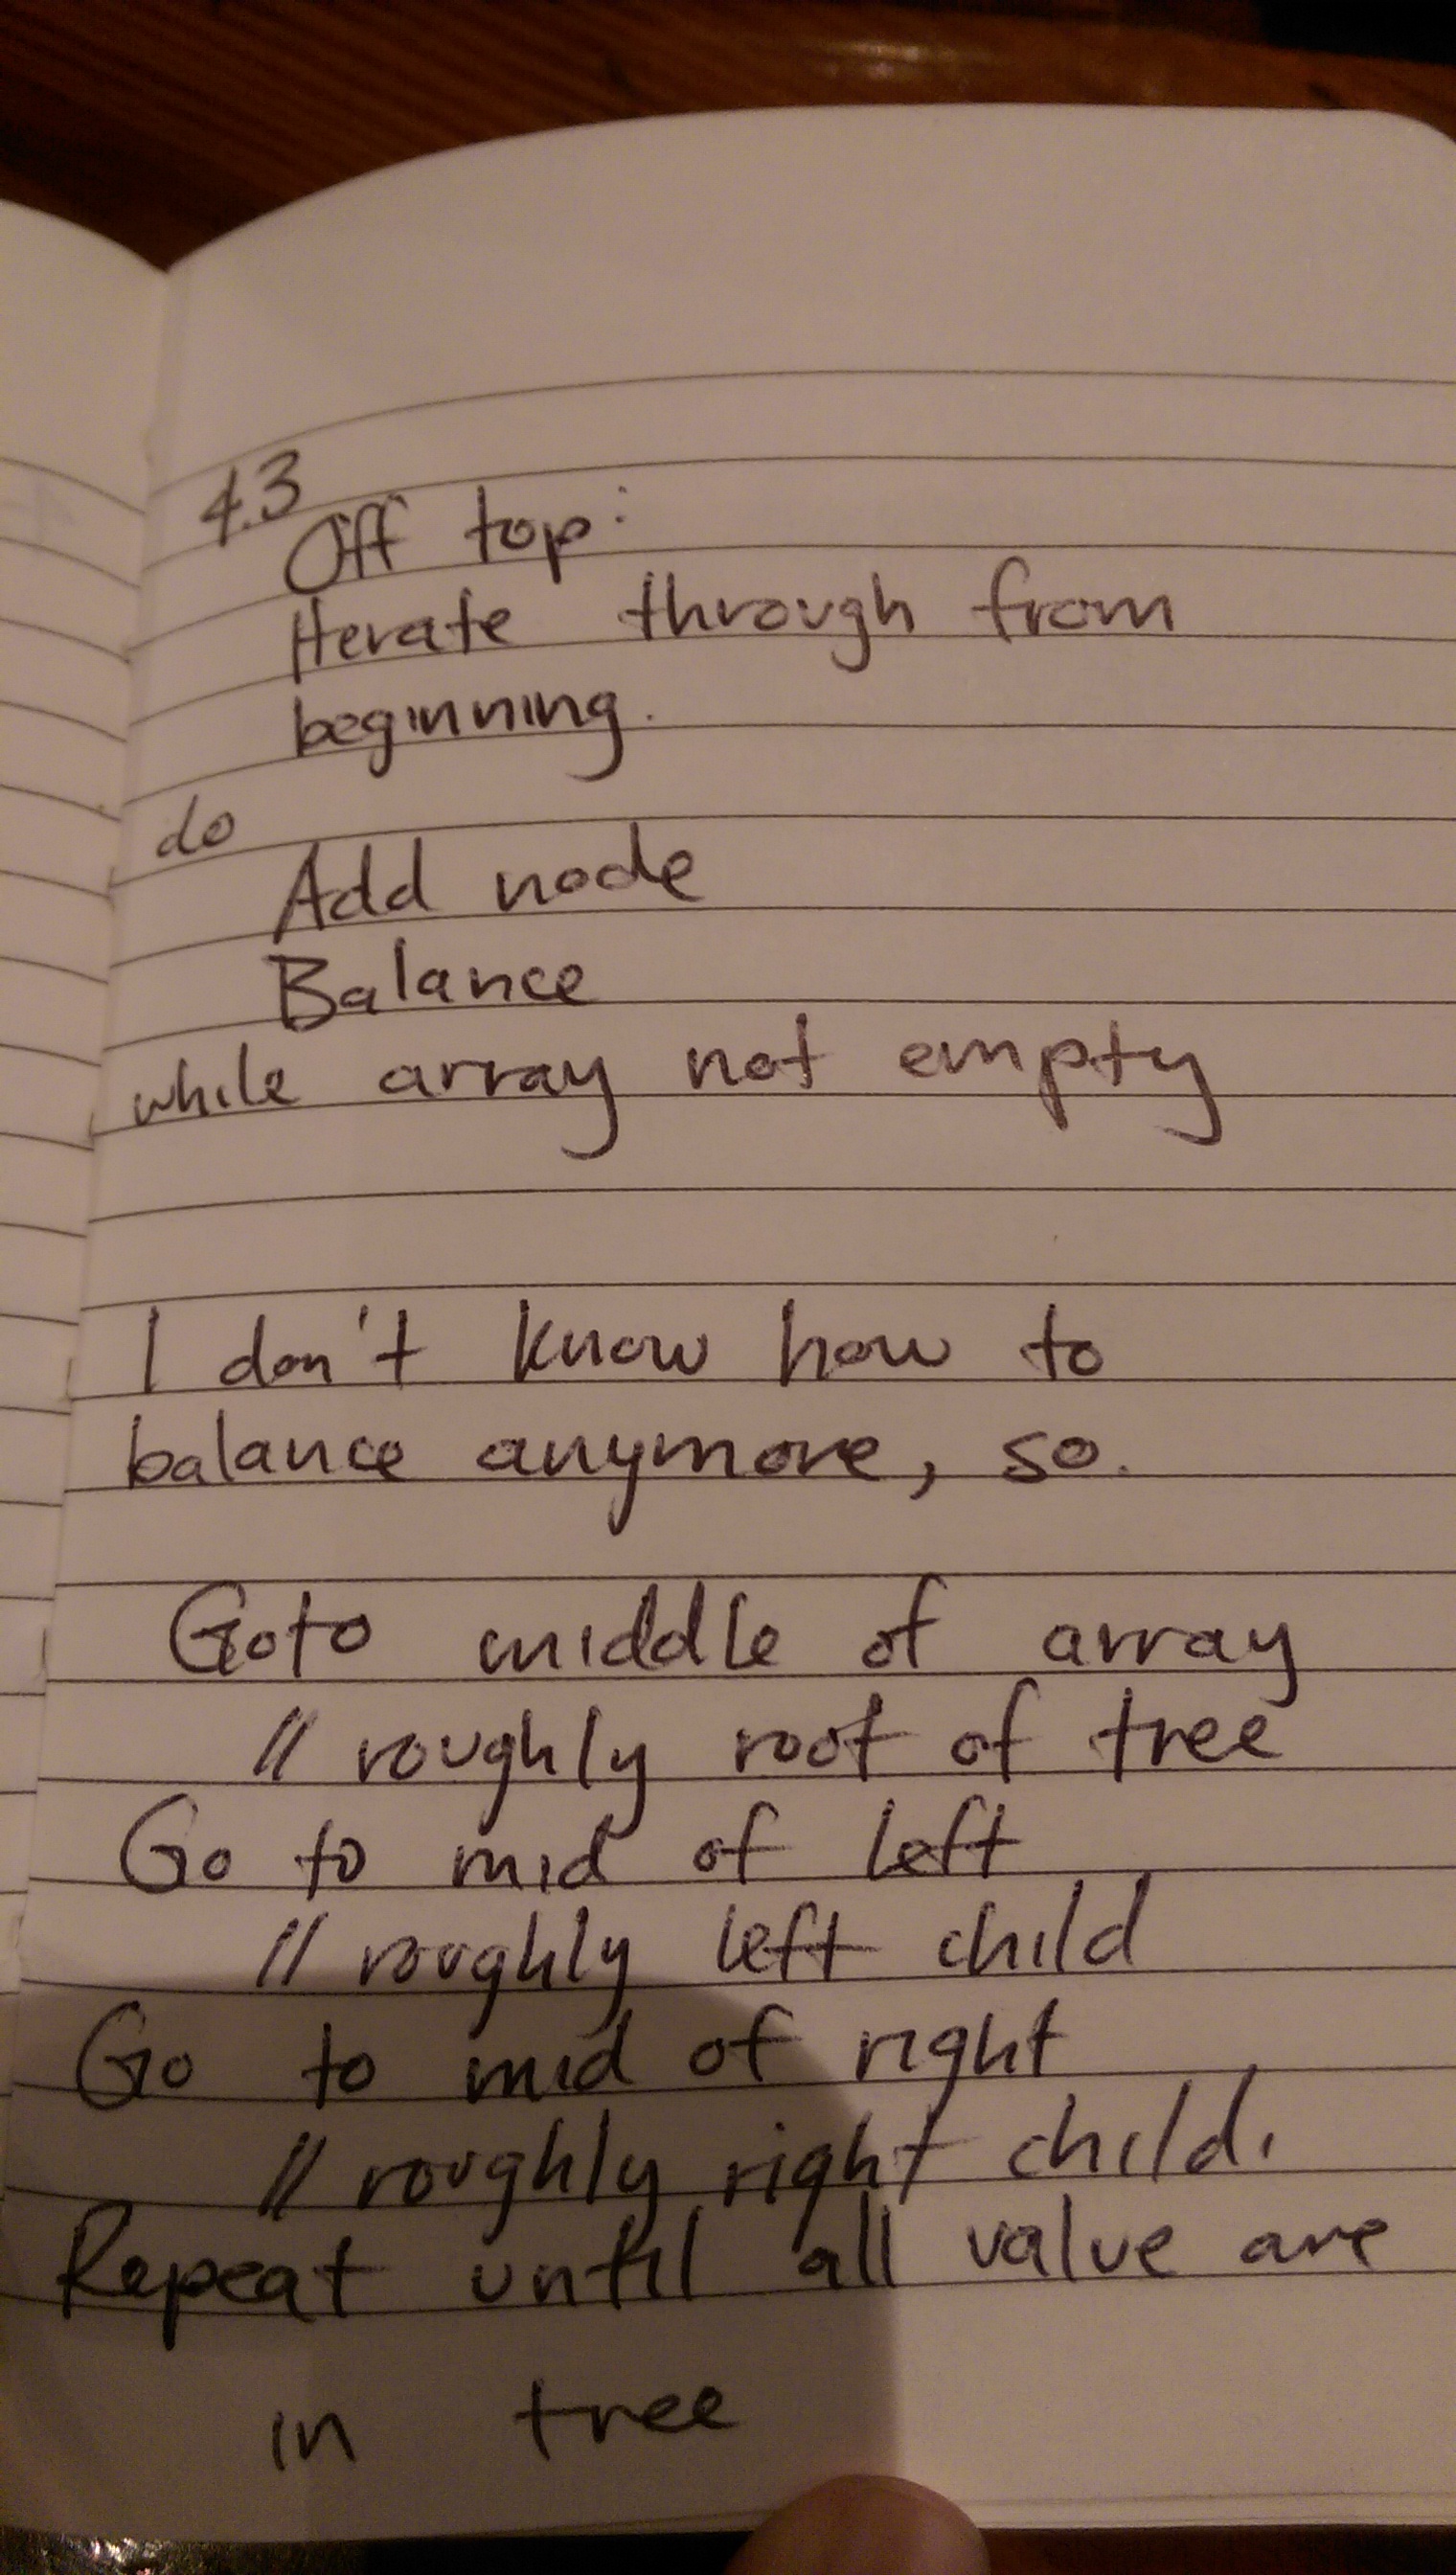 4.3
Off top:
Iterate through from
beginning.
do
Add node
Balance
while array not empty
I don't know how to
balance anymore, so.
Goto middle of array
// roughly root of tree
Go to mid of left
// roughly left child
Go to mid of right
// roughly right child.
Repeat until all value are
in tree